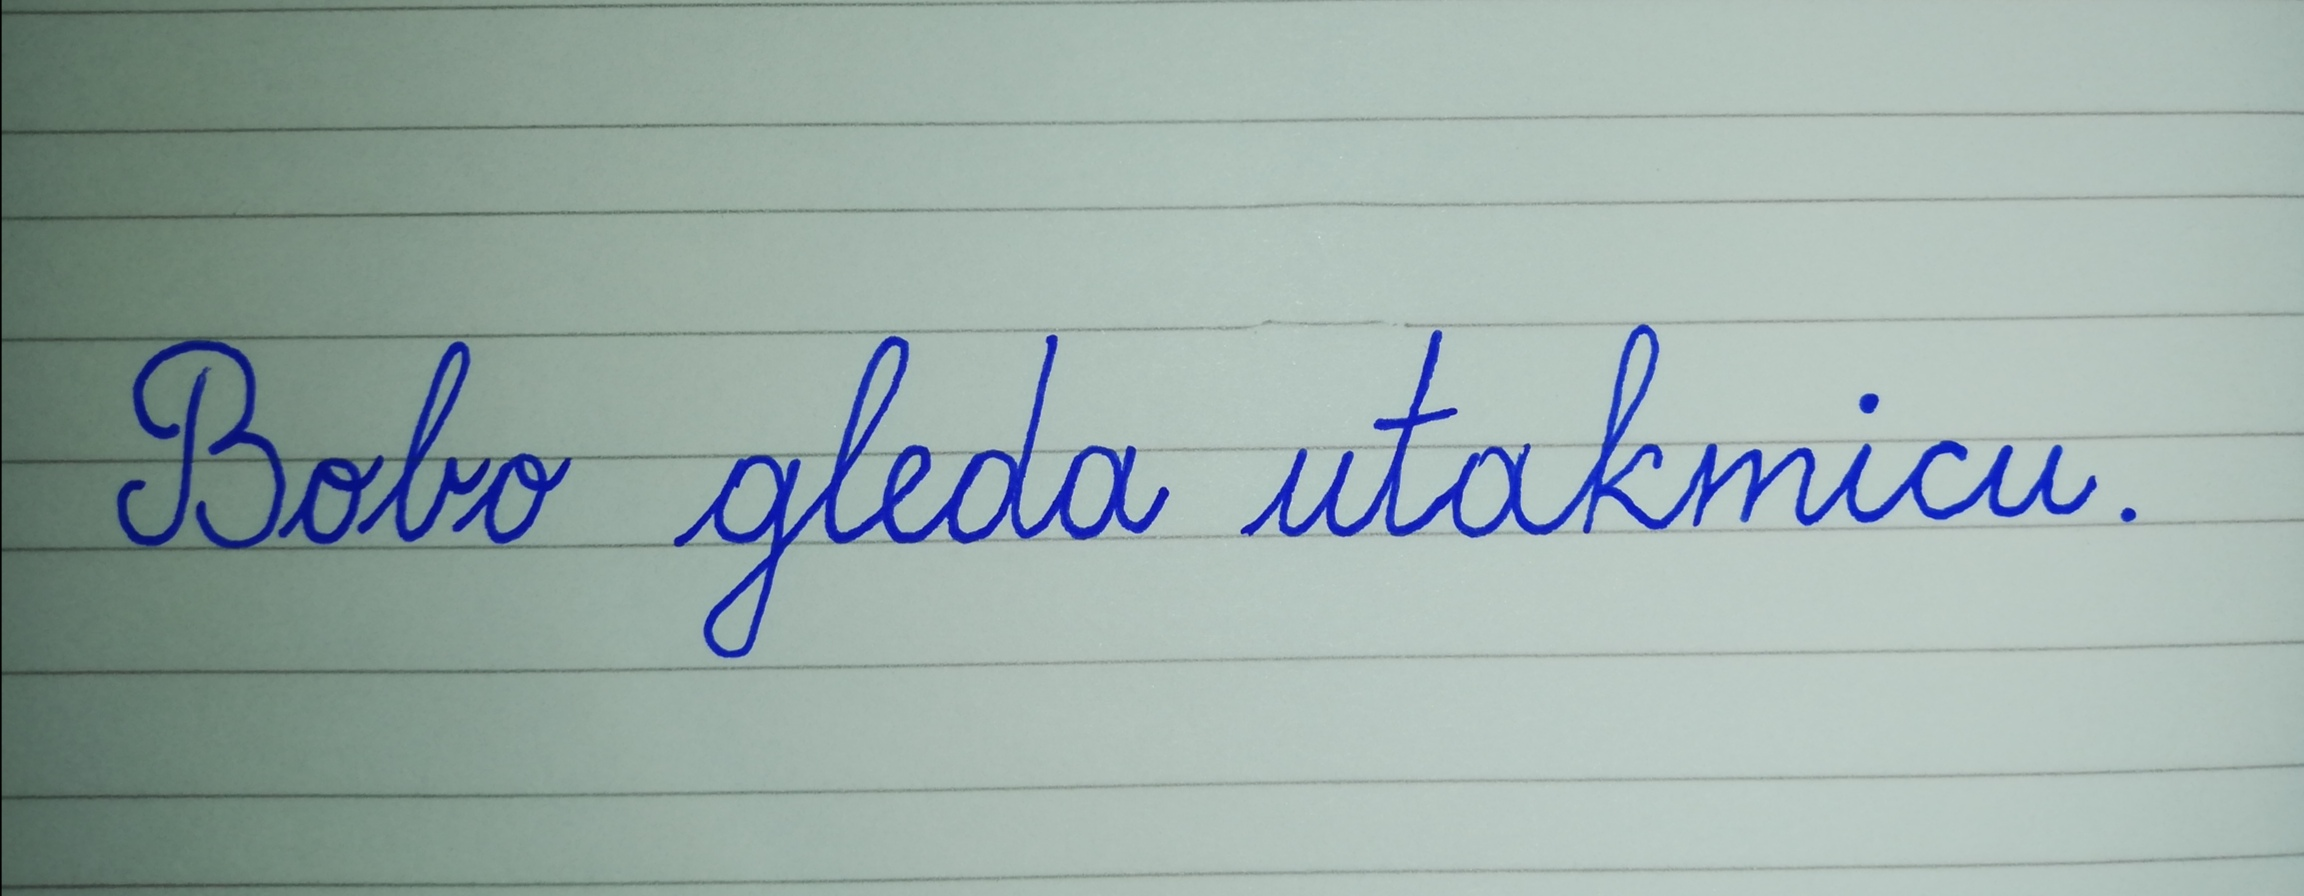 Bobo gleda utakmicu.